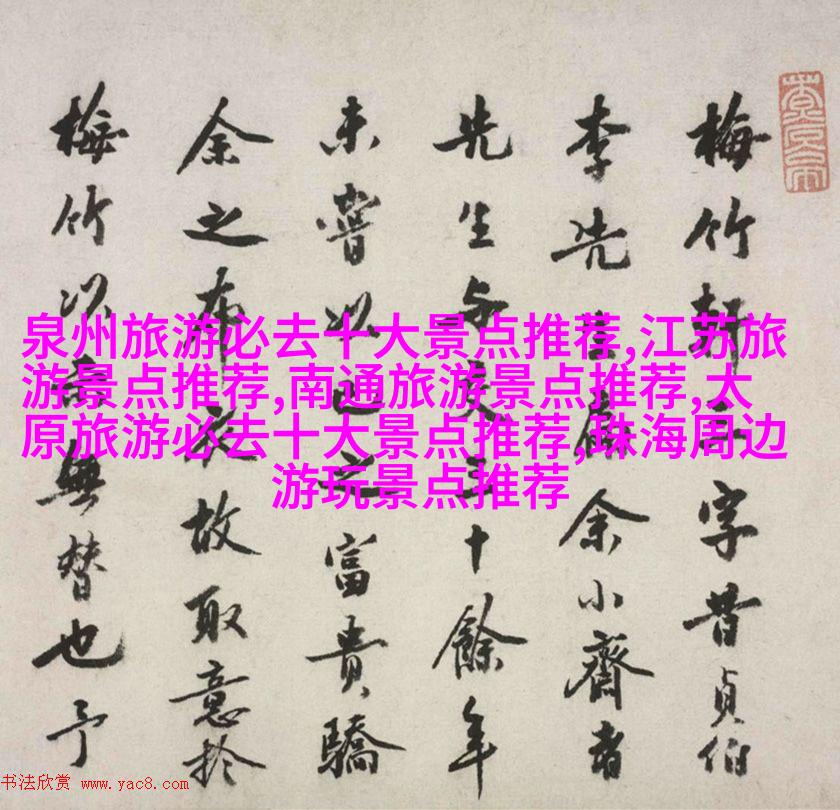 梅竹軒三字昔貞伯
李先生為余小齋書
先生与交三十餘年
未嘗以己之富貴驕
余之布衣故取意於
梅竹以無替也予
泉州旅游必去十大景点推荐,江苏旅
游景点推荐,南通旅游景点推荐,太
原旅游必去十大景点推荐,珠海周边
游玩景点推荐
书法欣赏 www.yac8.com